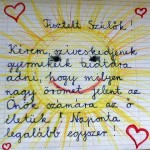 Tisztelt Szülők!
Kérem, szíveskedjenek
gyermekeik tudtára
adni, hogy milyen
nagy örömet jelent az
Önök számára az ő
életük! Naponta
legalább egyszer!